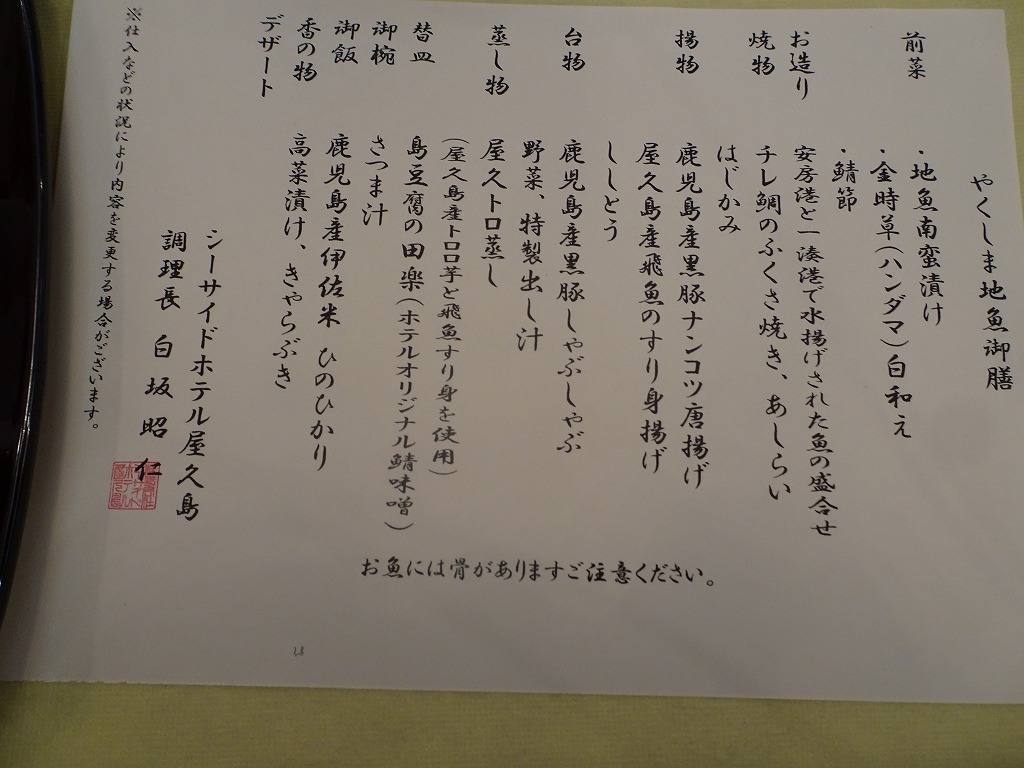 やくしま地魚御膳
前菜 ・地魚南蛮漬け
・金時草(ハンダマ)白和え
・鯖節
お造り 安房港と一湊港で水揚げされた魚の盛合せ
焼物 チレ鯛のふくさ焼き、あしらい
はじかみ
揚物 鹿児島産黒豚ナンコツ唐揚げ
屋久島産飛魚のすり身揚げ
ししとう
台物 鹿児島産黒豚しゃぶしゃぶ
野菜、特製出し汁
蒸し物 屋久トロ蒸し
(屋久島産トロロ芋と飛魚すり身を使用)
替皿 島豆腐の田楽(ホテルオリジナル鯖味噌)
御椀 さつま汁
御飯 鹿児島産伊佐米 ひのひかり
香の物 高菜漬け、きゃらぶき
デザート
シーサイドホテル屋久島
調理長 白坂昭仁
※仕入などの状況により内容を変更する場合がございます。
お魚には骨がありますご注意ください。